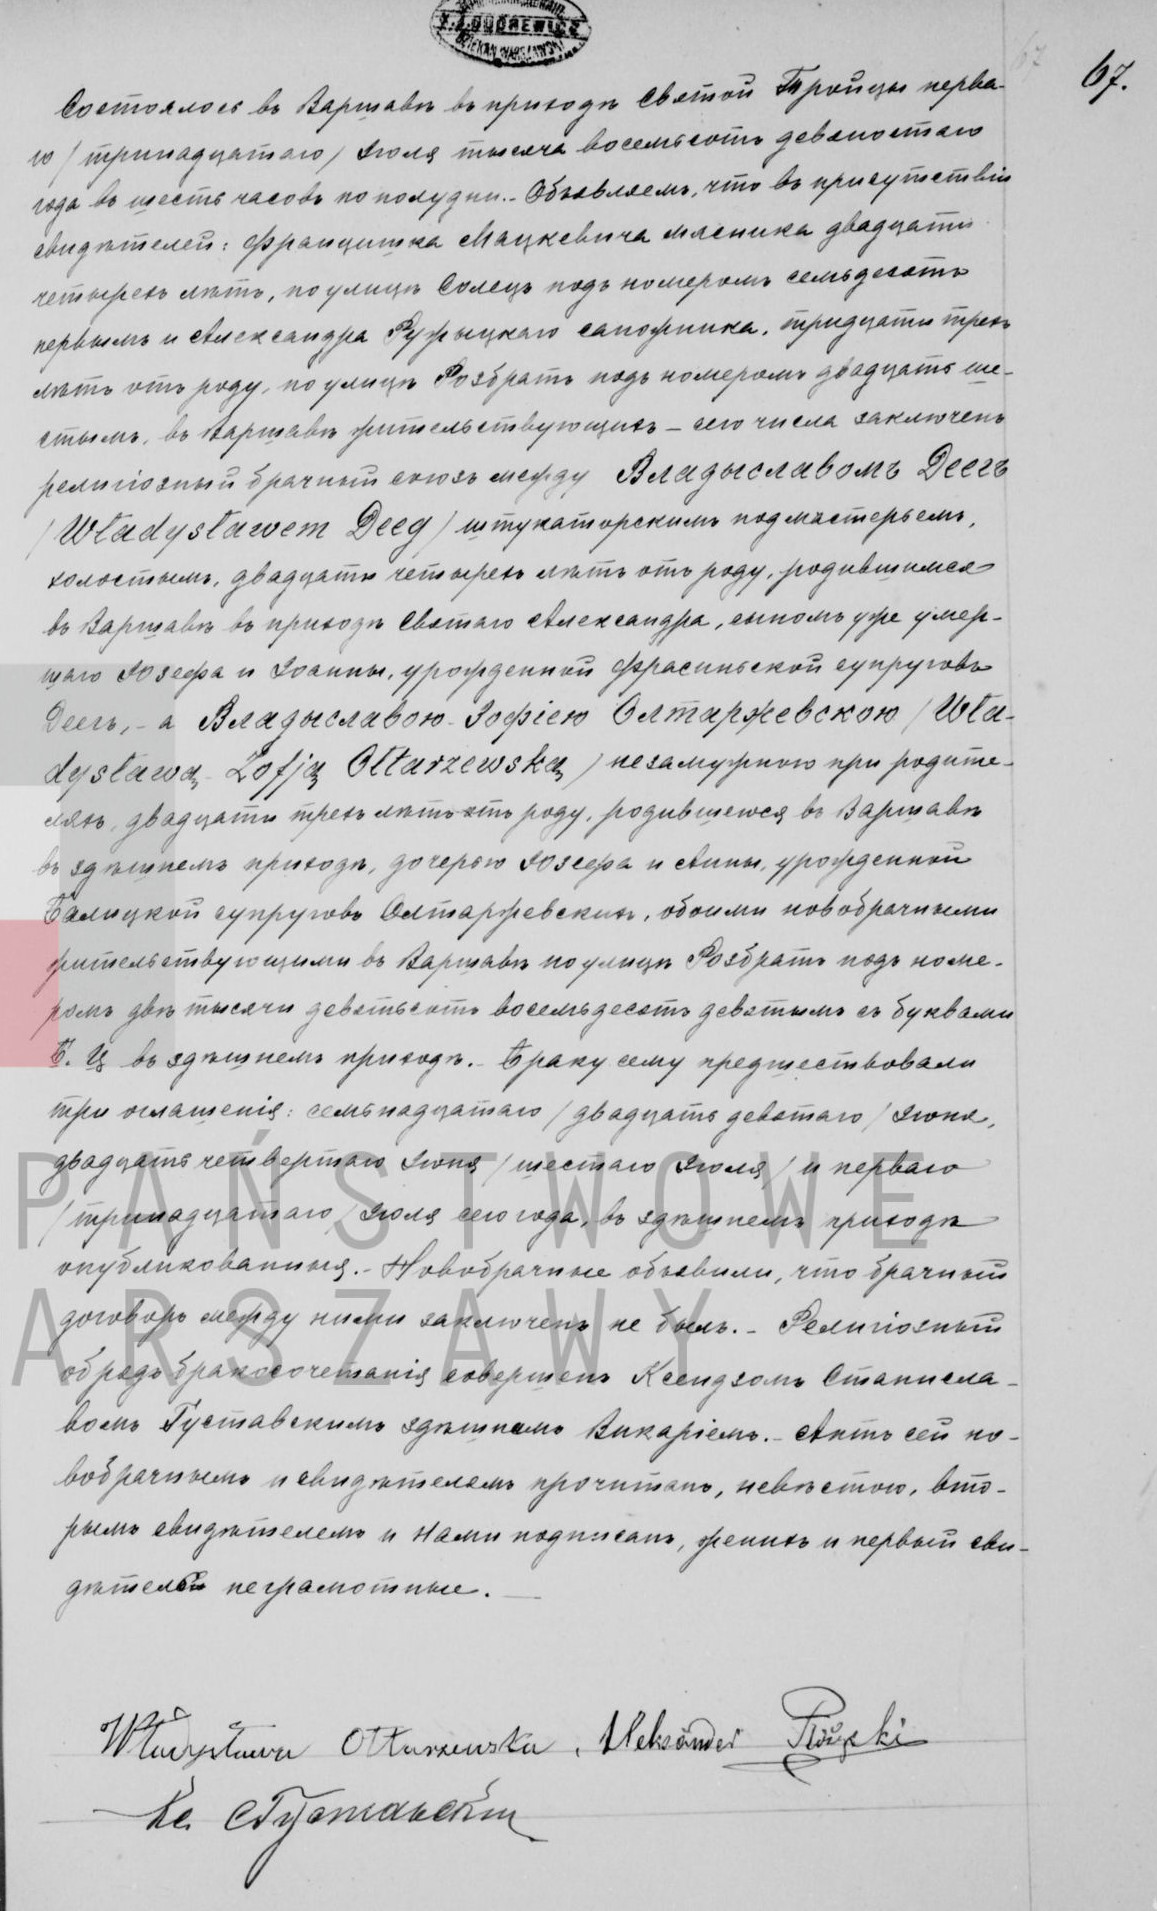 67.
Состоялось въ Варшавѣ въ приходѣ Святой Тройцы перва-
го /тринадцатаго/ Іюля тысяча восемьсотъ девяностаго
года въ шесть часовъ по полудни.- Объявляемъ, что въ присутствіи
свидѣтелей: Францишка Мацкевича мясника двадцати
четырехъ лѣтъ, по улицѣ Солецъ подъ номеромъ семьдесятъ
первымъ и Александра сапожника, тридцати трехъ
лѣтъ отъ роду, по улицѣ Розбратъ подъ номеромъ двадцать ше-
стымъ, въ Варшавѣ жительствующихъ – сего числа заключенъ
религіозный брачный союзъ между Владыславомъ Деегъ
/Władysławem Deeg/ штукаторскимъ подмастерьемъ,
холостымъ, двадцати четырехъ лѣтъ отъ роду, родившимся
въ Варшавѣ въ приходѣ Святаго Александра, сыномъ уже умер-
шаго Іозефа и Іоанны, урожденной супруговъ
Деегъ, - а Владыславою-Зофіею Олтаржевскою /Wła-
dysławą-Zofją Ołtarzewską/ незамужною при родите-
ляхъ, двадцати трехъ лѣтъ отъ роду, родившеюся въ Варшавѣ
въ здѣшнемъ приходѣ, дочерью Іозефа и Анны, урожденной
Балицкой супруговъ Олтаржевскихъ, обоими новобрачными
жительствующими въ Варшавѣ по улицѣ Розбратъ подъ номе-
ромъ двѣ тысячи девятьсотъ восемьдесятъ девятымъ съ буквами
Б. Ц въ здѣшнемъ приходѣ.- Браку сему предшествовали
три оглашенія: семьнадцатаго /двадцать девятаго/ Іюня,
двадцать четвертаго Іюня /шестаго Іюля/ и перваго
/тринадцатаго/ Іюля сего года, въ здѣшнемъ приходѣ
опубликованныя.- Новобрачные объявили, что брачный
договоръ между ними заключенъ не былъ.- Религіозный
обрядъ бракосочетанія совершенъ Ксендзомъ Станисла-
вомъ Густавскимъ здѣшнимъ Викаріемъ.- Актъ сей но-
вобрачнымъ и свидѣтелямъ прочитанъ, невѣстою, вто-
рымъ свидѣтелемъ и Нами подписанъ, женихъ и первый сви-
дѣтель неграмотные.
Władysława Ołtarzewska, Aleksander
Кс. СГуставскій
PAŃSTWOWE
ARSZAWY